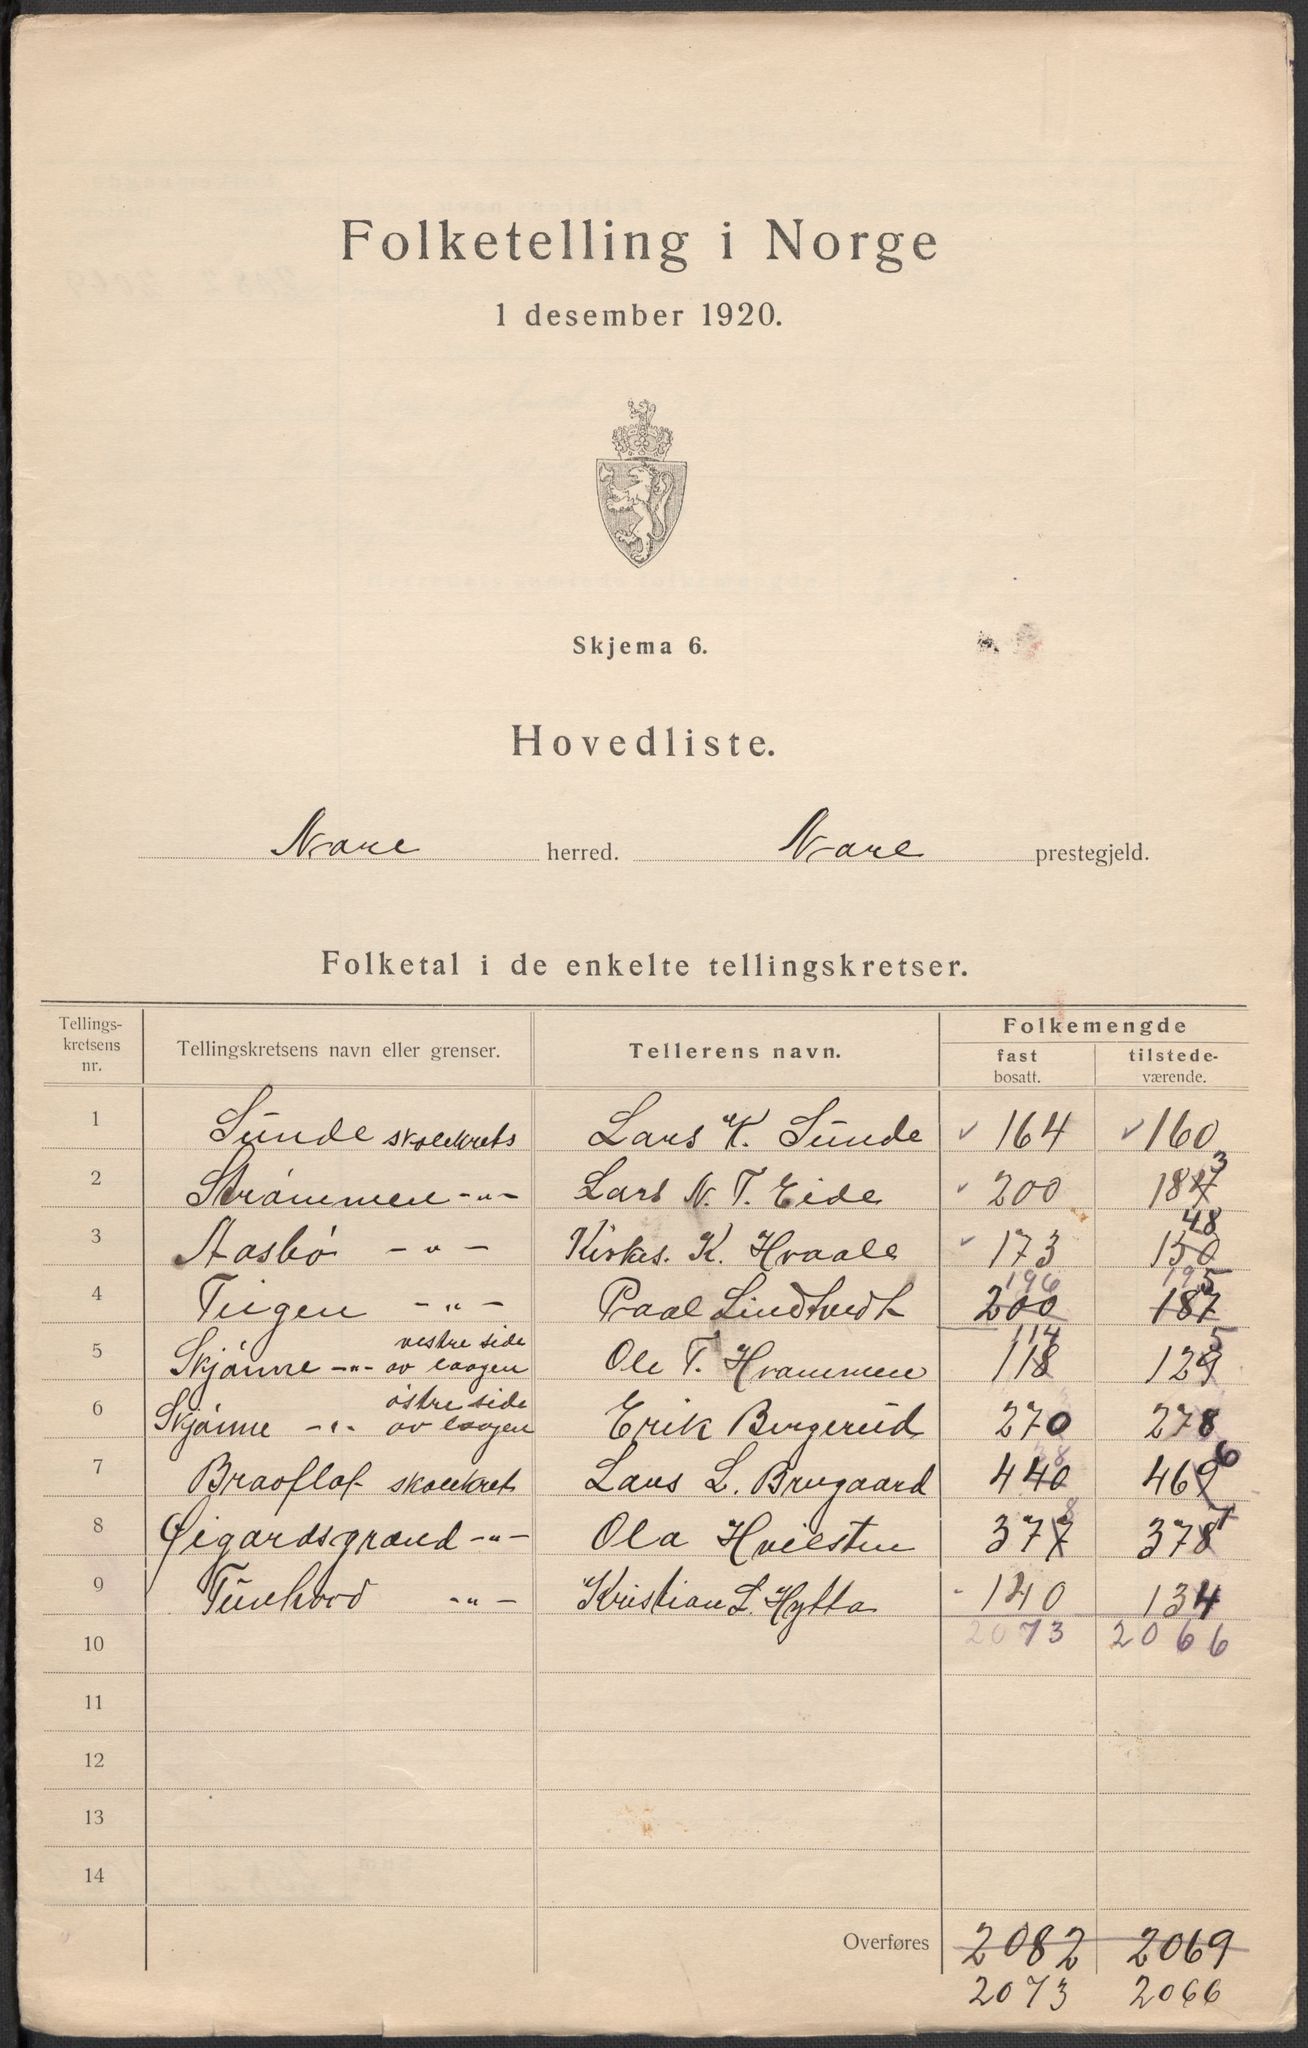 Folketelling i Norge
1 desember 1920.
Skjema 6.
Hovedliste.
Nore herred. Nore prestegjeld.
Folketal i de enkelte tellingskretser.
Tellings-kretsens nr. Tellingskretsens navn eller grenser. Tellerens navn. Folkemengde
fast bosatt. tilstede-værende.
1 Sunde skolekrets Lars K. Sunde 164 160
2 Strømmen -"- Lars N. T. Eide 200 187 3
3 Aasbø -"- Kirkes. K. Hvaale 173 150 48
4 Tugen -"- Paal Lindtvedt 200 196 187 195
5 Skjønne -"- vestre side av laagen Ole T. Hvammen 118 114 129 5
6 Skjønne -"- østre side av laagen Erik Bergerud 270 278
7 Braaflat skolekret Lars L. Brugaard 440 38 469 6
8 Øigardsgrænd -"- Ola Hvilsten 377 8 378 7
9 Tunhovd -"- Kristian L. Hytta 140 134
10 2073 2066
11
12
13
14
Overføres 2082 2069
2073 2066